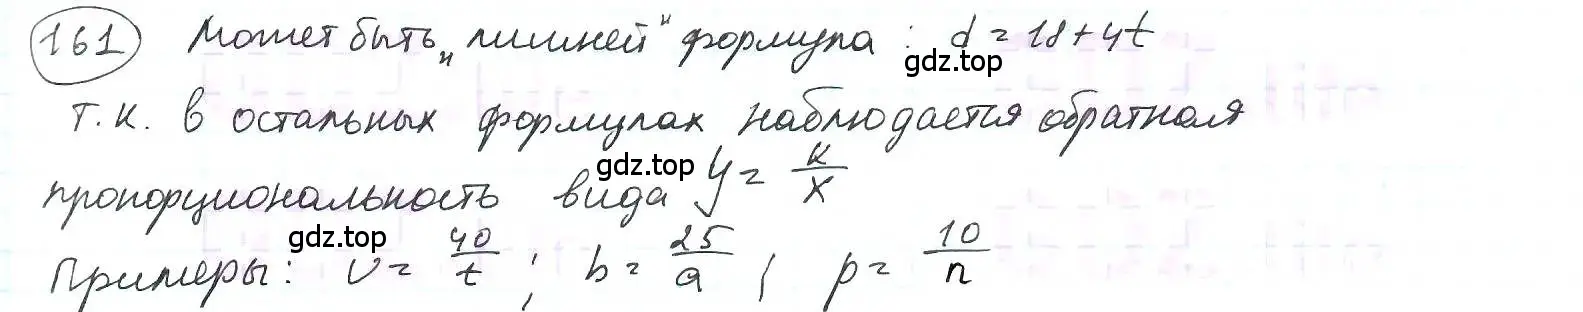 161 Может быть „лишней" формула: d = 18 + 4t
gdz.top
т.к. в остальных формулах наблюдается обратная
gdz.top
пропорциональность вида y = k/x
gdz.top
Примеры: v = 40/t ; b = 25/a ; p = 10/n
gdz.top